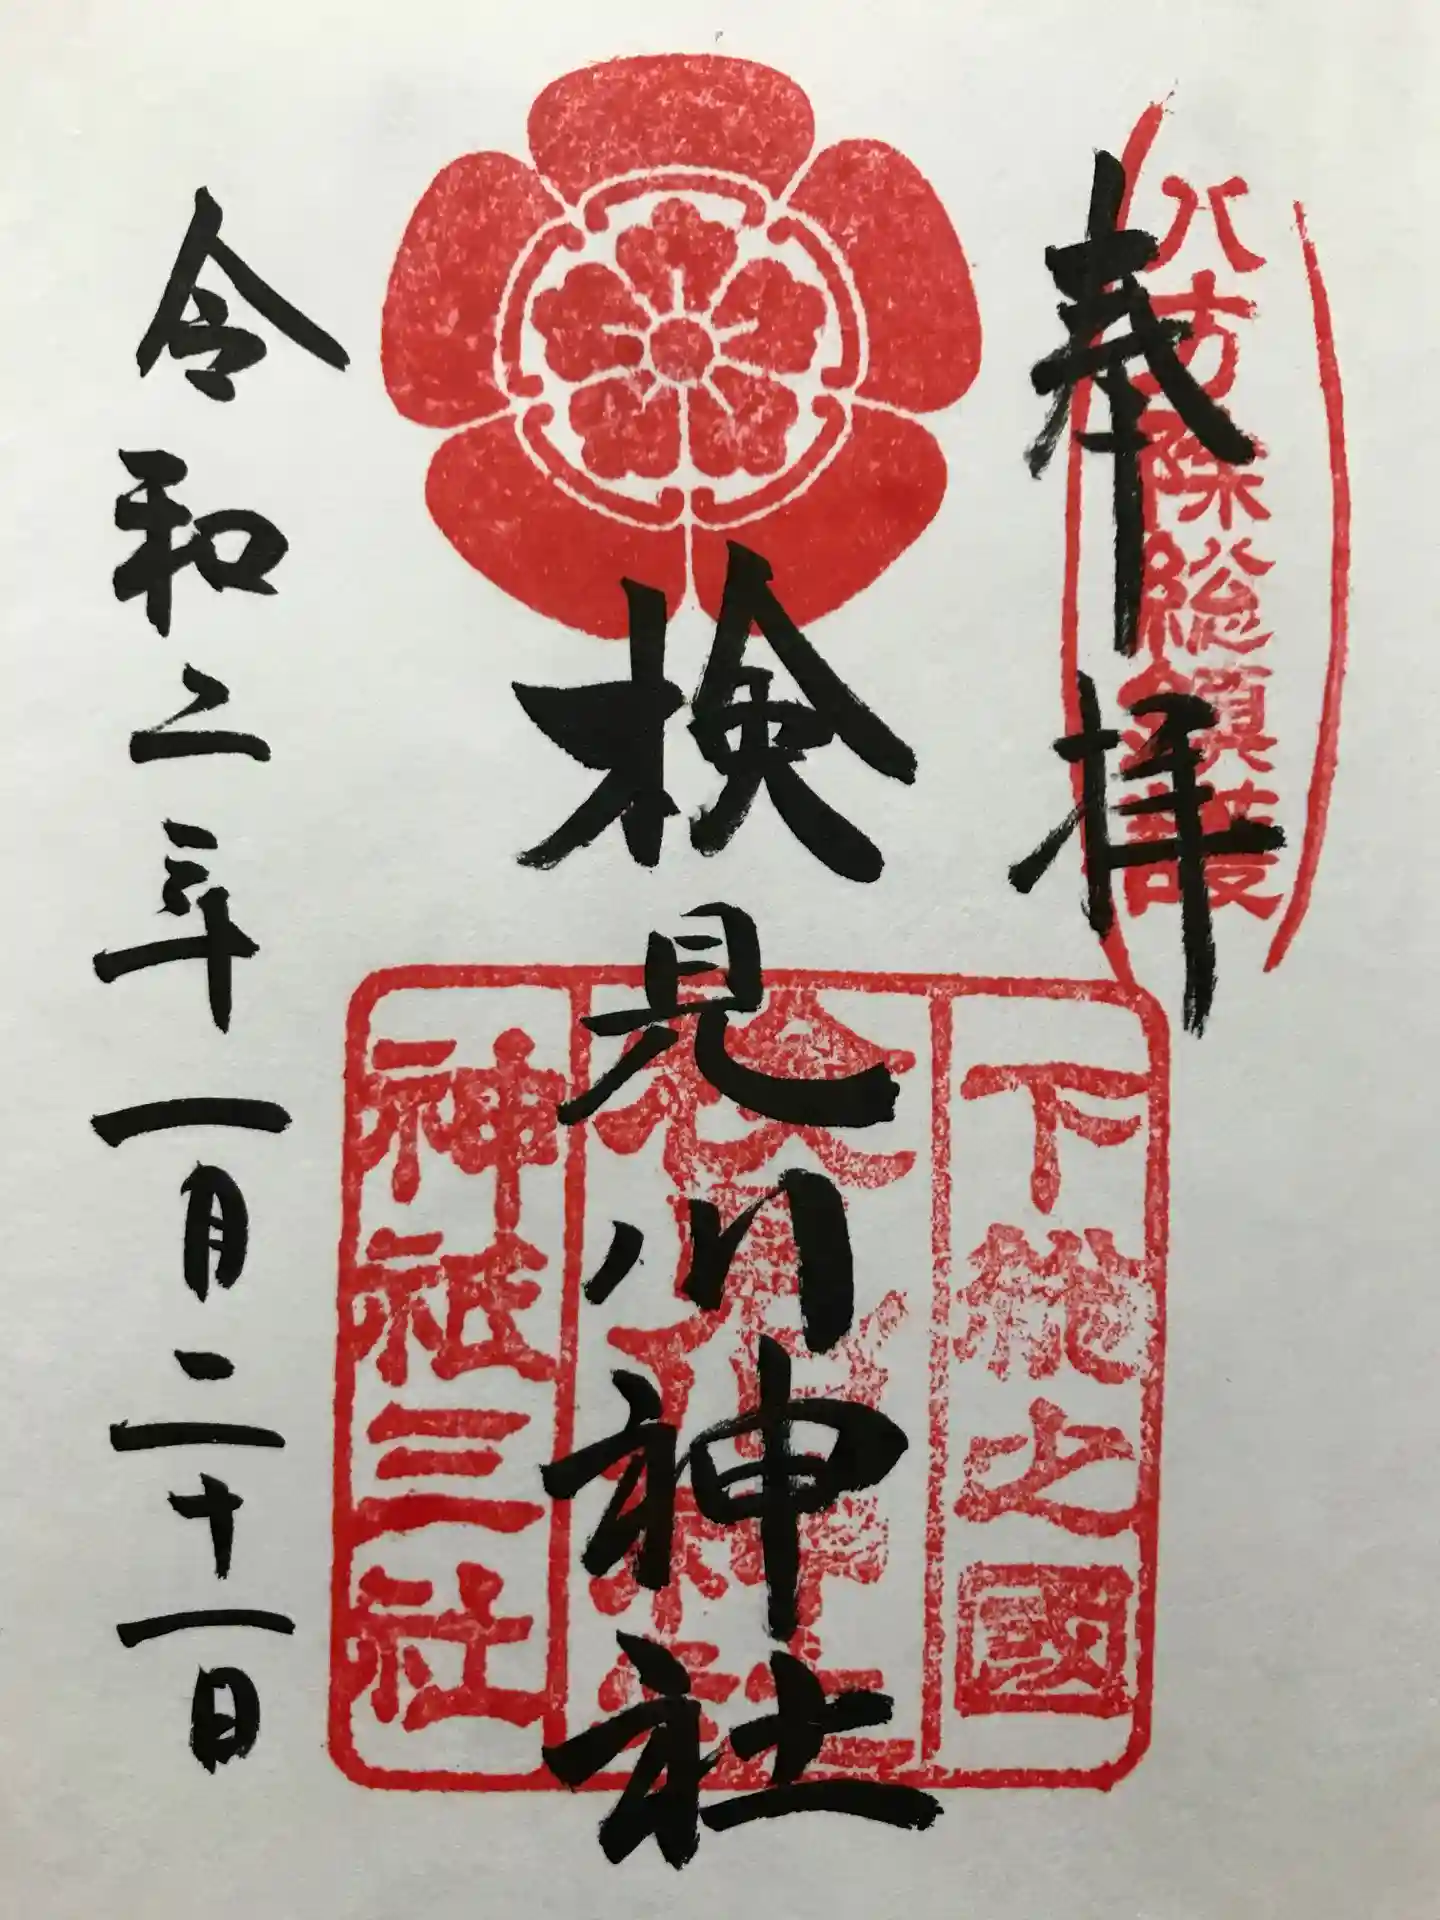 奉拝
八方除総鎮護
検見川神社
下總之國
検見川神社
神祇三社
令和二年一月二十一日